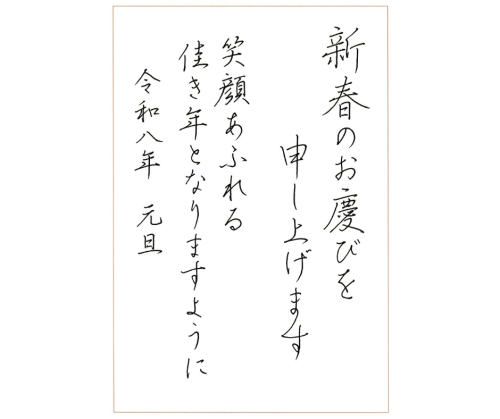 新春のお慶びを
申し上げます
笑顔あふれる
佳き年となりますように
令和八年 元旦